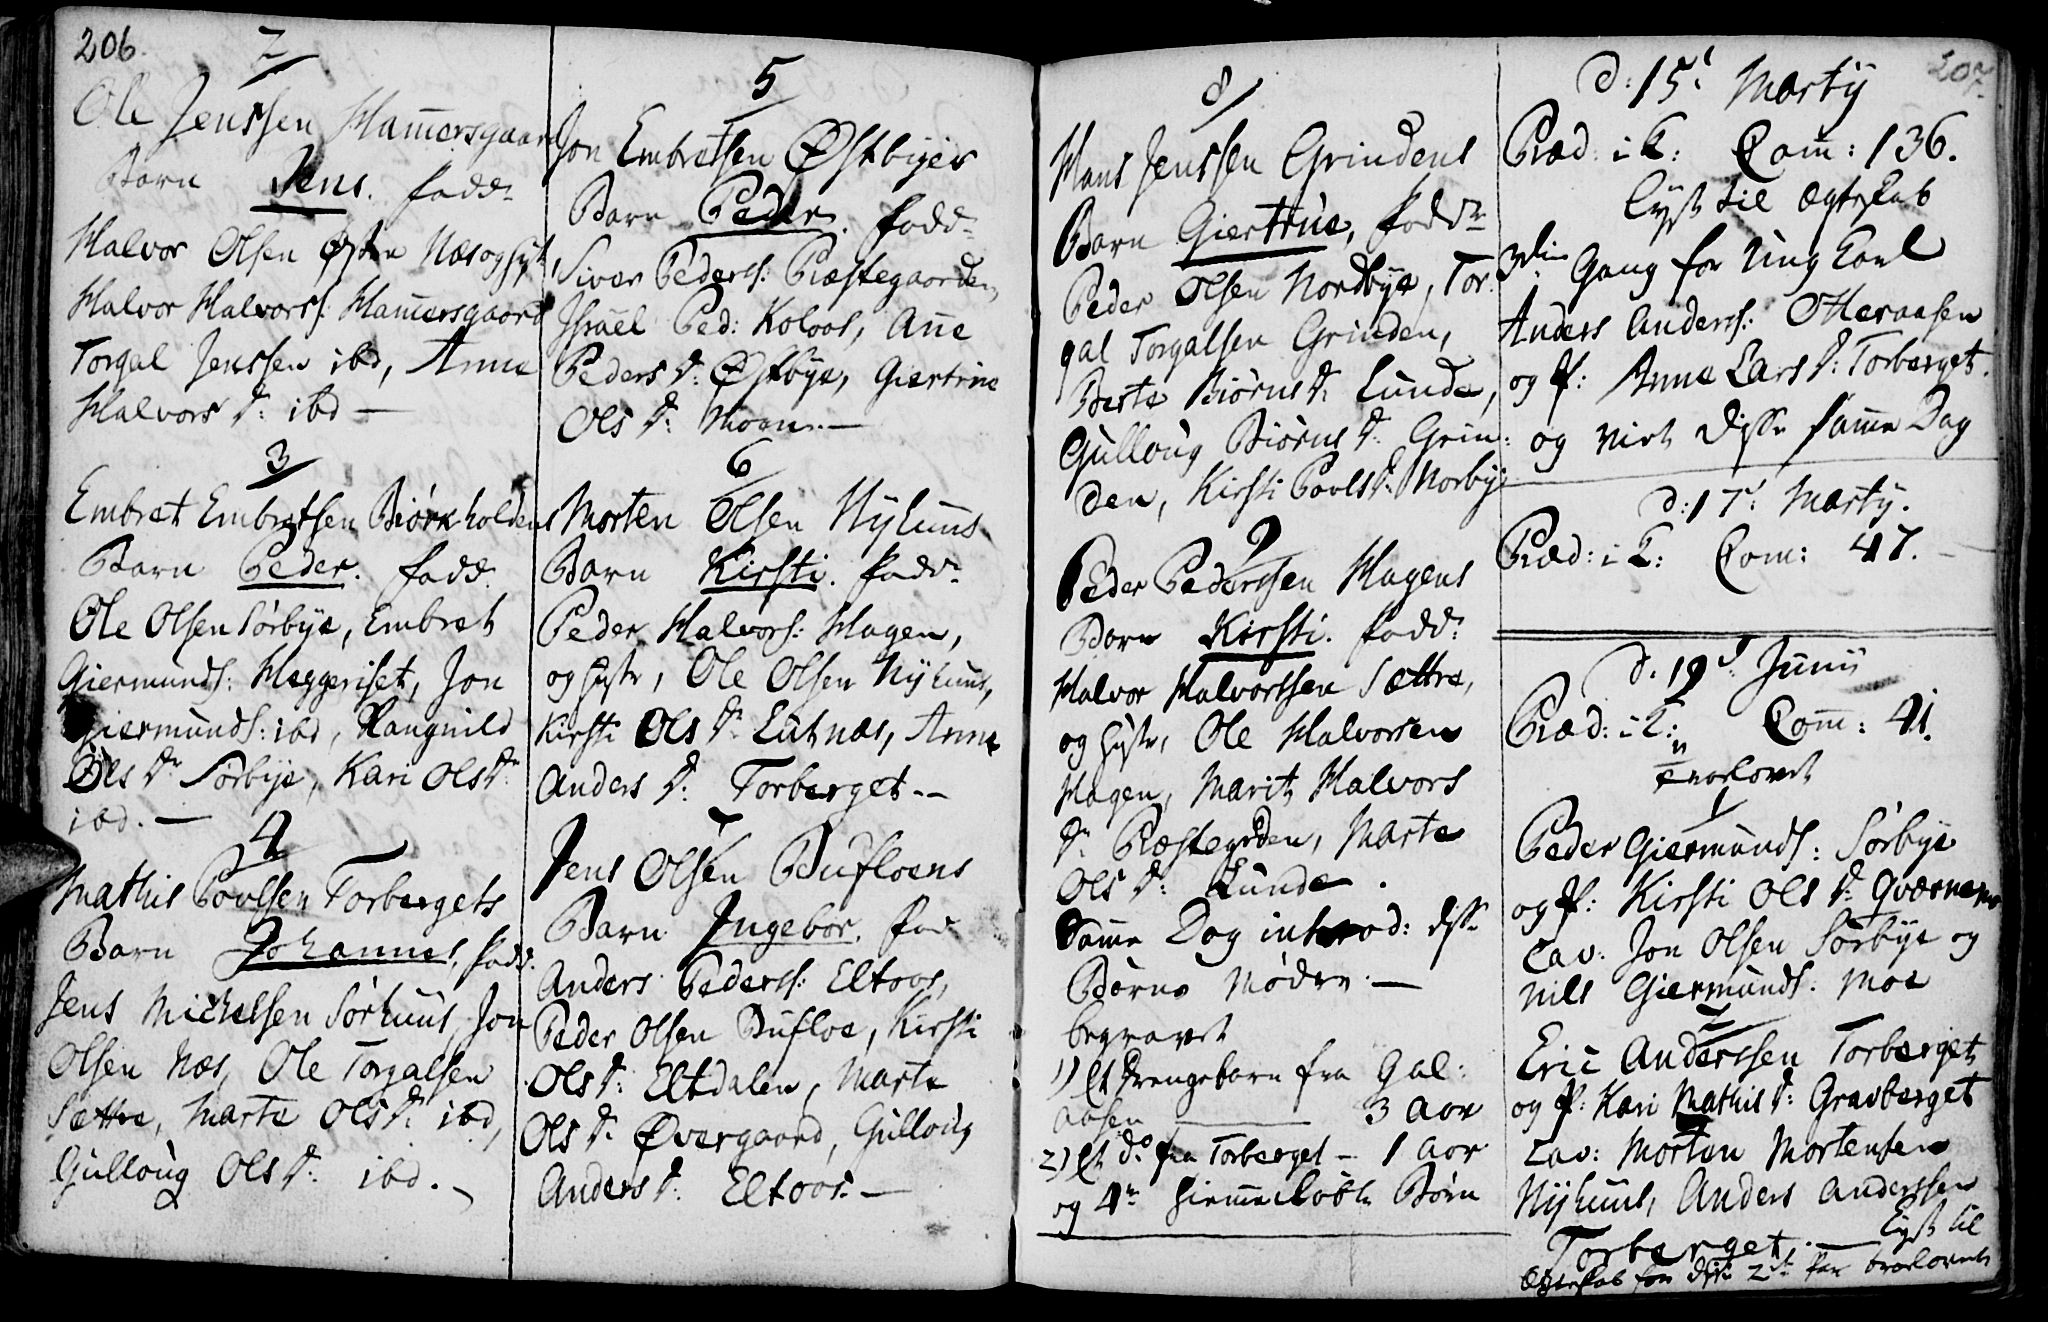 206.
2
Ole Jenssen Ham̄ersgaard
Barn Jens. fadd:
Halvor Olsen Østre Næs og Hust,
Halvor Halvorss: Ham̄ersgaard
Torgal Jenssen ibd, Anne
Halvors D: ibd —
3
Embret Embretsen Biørkholdens
Barn Peder. fadd:
Ole Olsen Sørbye, Embret
Giermunds: Heggeriset, Jon
Giermunds: ibd, Raugnild
Ols Dr Sørbye, Kari Ols Dr
ibd. —
4
Mathis Povlsen Torbergets
Barn Johannes, fadd:
Jens Michelsen Sørhuus, Jon
Olsen Næs, Ole Torgalsen
Sættre, Marte Ols Dr ibd,
Gulloug Ols D: ibd. —
5
Jon Embretsen Østbyes
Barn Peder. fadd:
Siver Pederss: Præstegaarden,
Jsrael Ped: Kolaas, An̄e
Peders D: Østbye, Giertrue
Ols D: Moen. —
6
Morten Olsen Nyhuus
Barn Kirsti. fadd:
Peder Halvors: Hagen,
og Hustr, Ole Olsen Nyhuus,
Kirsti Ols Dr Lutnæs, Anne
Anders D: Torberget. —
7
Jens Olsen Bufloens
Barn Jngebor. fad
Anders Pederss: Eltoos,
Peder Olsen Bufloe, Kirsti
Ols D: Eltdalen, Marte
Ols D: Øvergaard, Gulloug
Anders D: Eltoos. —
8
Hans Jenssen Grindens
Barn Giertrue, fadd:
Peder Olsen Nordbye, Tor:
gal Torgalsen Grinden,
Berte Biørns D: Lunde,
Gulloug Biørns D: Grin:
den, Kirsti Povls D: Norbye
9
Peder Pederssen Hagens
Barn Kirsti. fadd:
Halvor Halvorssen Sættre,
og Hustr, Ole Halvorsen
Hagen, Marit Halvors
Dr Præstegrden, Marte
Ols D: Lunde.
Sam̄e Dag introd: disse
Børns Mødre. —
begravet
1) Et Drengebarn fra Gal:
aasen — 3 Aar
2) Et do fra Torberget — 1 Aar
og 4re hiem̄edøbte Børn
207.
d: 15' Martij
Præd: i K: Com̄: 136.
Lyst til Ægteskab
3die Gang for Ung Karl
Anders Anderss: Otteraasen
og P: Anne Lars D: Torberget.
og viet disse sam̄e Dag
d: 17' Martij.
Præd: i K: Com: 47. —
d. 19' Junii
Præd: i K: Com̄: 41.
trolovet
1
Peder Giermunds: Sørbye
og P: Kirsti Ols D: Qværnemo
Cav: Jon Olsen Sørbye og
Nils Giermunds: Moe
2
Eric Anderssen Torberget
og P: Kari Mathis D: Gravberget
Cav: Morten Mortensen
Nyhuus, Anders Anderssen
Torberget. — Lyst til
Ægteskab for disse 2de Par trolovede